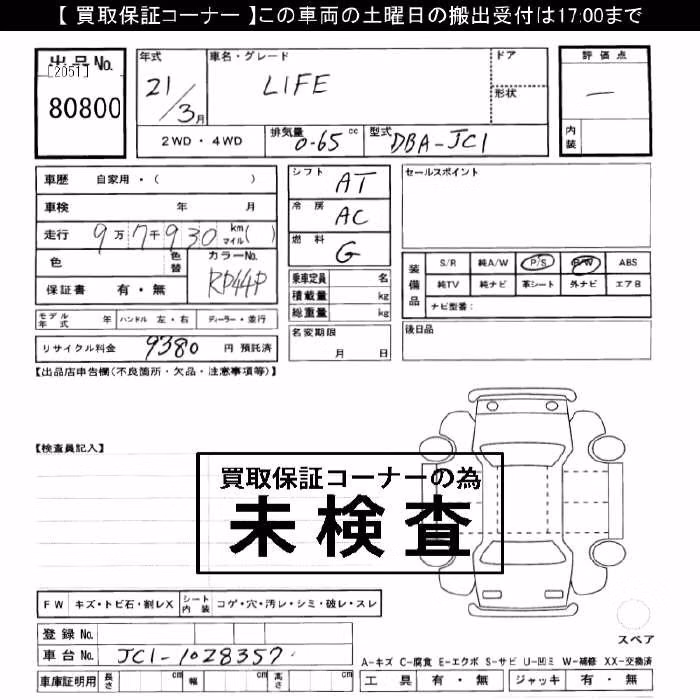 【 買取保証コーナー 】この車両の土曜日の搬出受付は17:00まで
出品No.
[2051]
80800
年式
21/3月
車名・グレード
LIFE
ドア
形状
評価点
—
内装
2WD・4WD
排気量 0.65 cc
型式 DBA-JC1
車歴 自家用・( )
車検 年 月
走行 9万7千930 km マイル( )
色 色替
カラーNo.
RP44P
保証書 有・無
モデル年式 年 ハンドル 左・右 ディーラー・並行
リサイクル料金 9380 円 預託済
シフト AT
冷房 AC
燃料 G
乗車定員 名
積載量 kg
総重量 kg
名変期限 月 日
セールスポイント
装備品
S/R 純A/W P/S P/W ABS
純TV 純ナビ 革シート 外ナビ エアB
ナビ型番:
後日品
【出品店申告欄(不良箇所・欠品・注意事項等)】
【検査員記入】
買取保証コーナーの為
未検査
FW キズ・トビ石・割レX シート内装 コゲ・穴・汚レ・シミ・破レ・スレ
登録No.
車台No. JC1-1028357
車庫証明用 長さ cm 幅 cm 高さ cm
スペア
A-キズ C-腐食 E-エクボ S-サビ U-凹ミ W-補修 XX-交換済
工具 有・無 ジャッキ 有・無